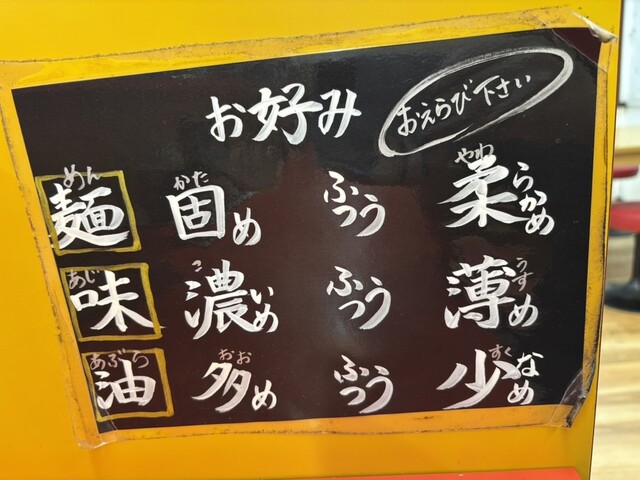 お好み おえらび下さい
麺 めん 固め かた ふつう 柔らかめ やわ
味 あじ 濃いめ こ ふつう 薄め うす
油 あぶら 多め おお ふつう 少なめ すく